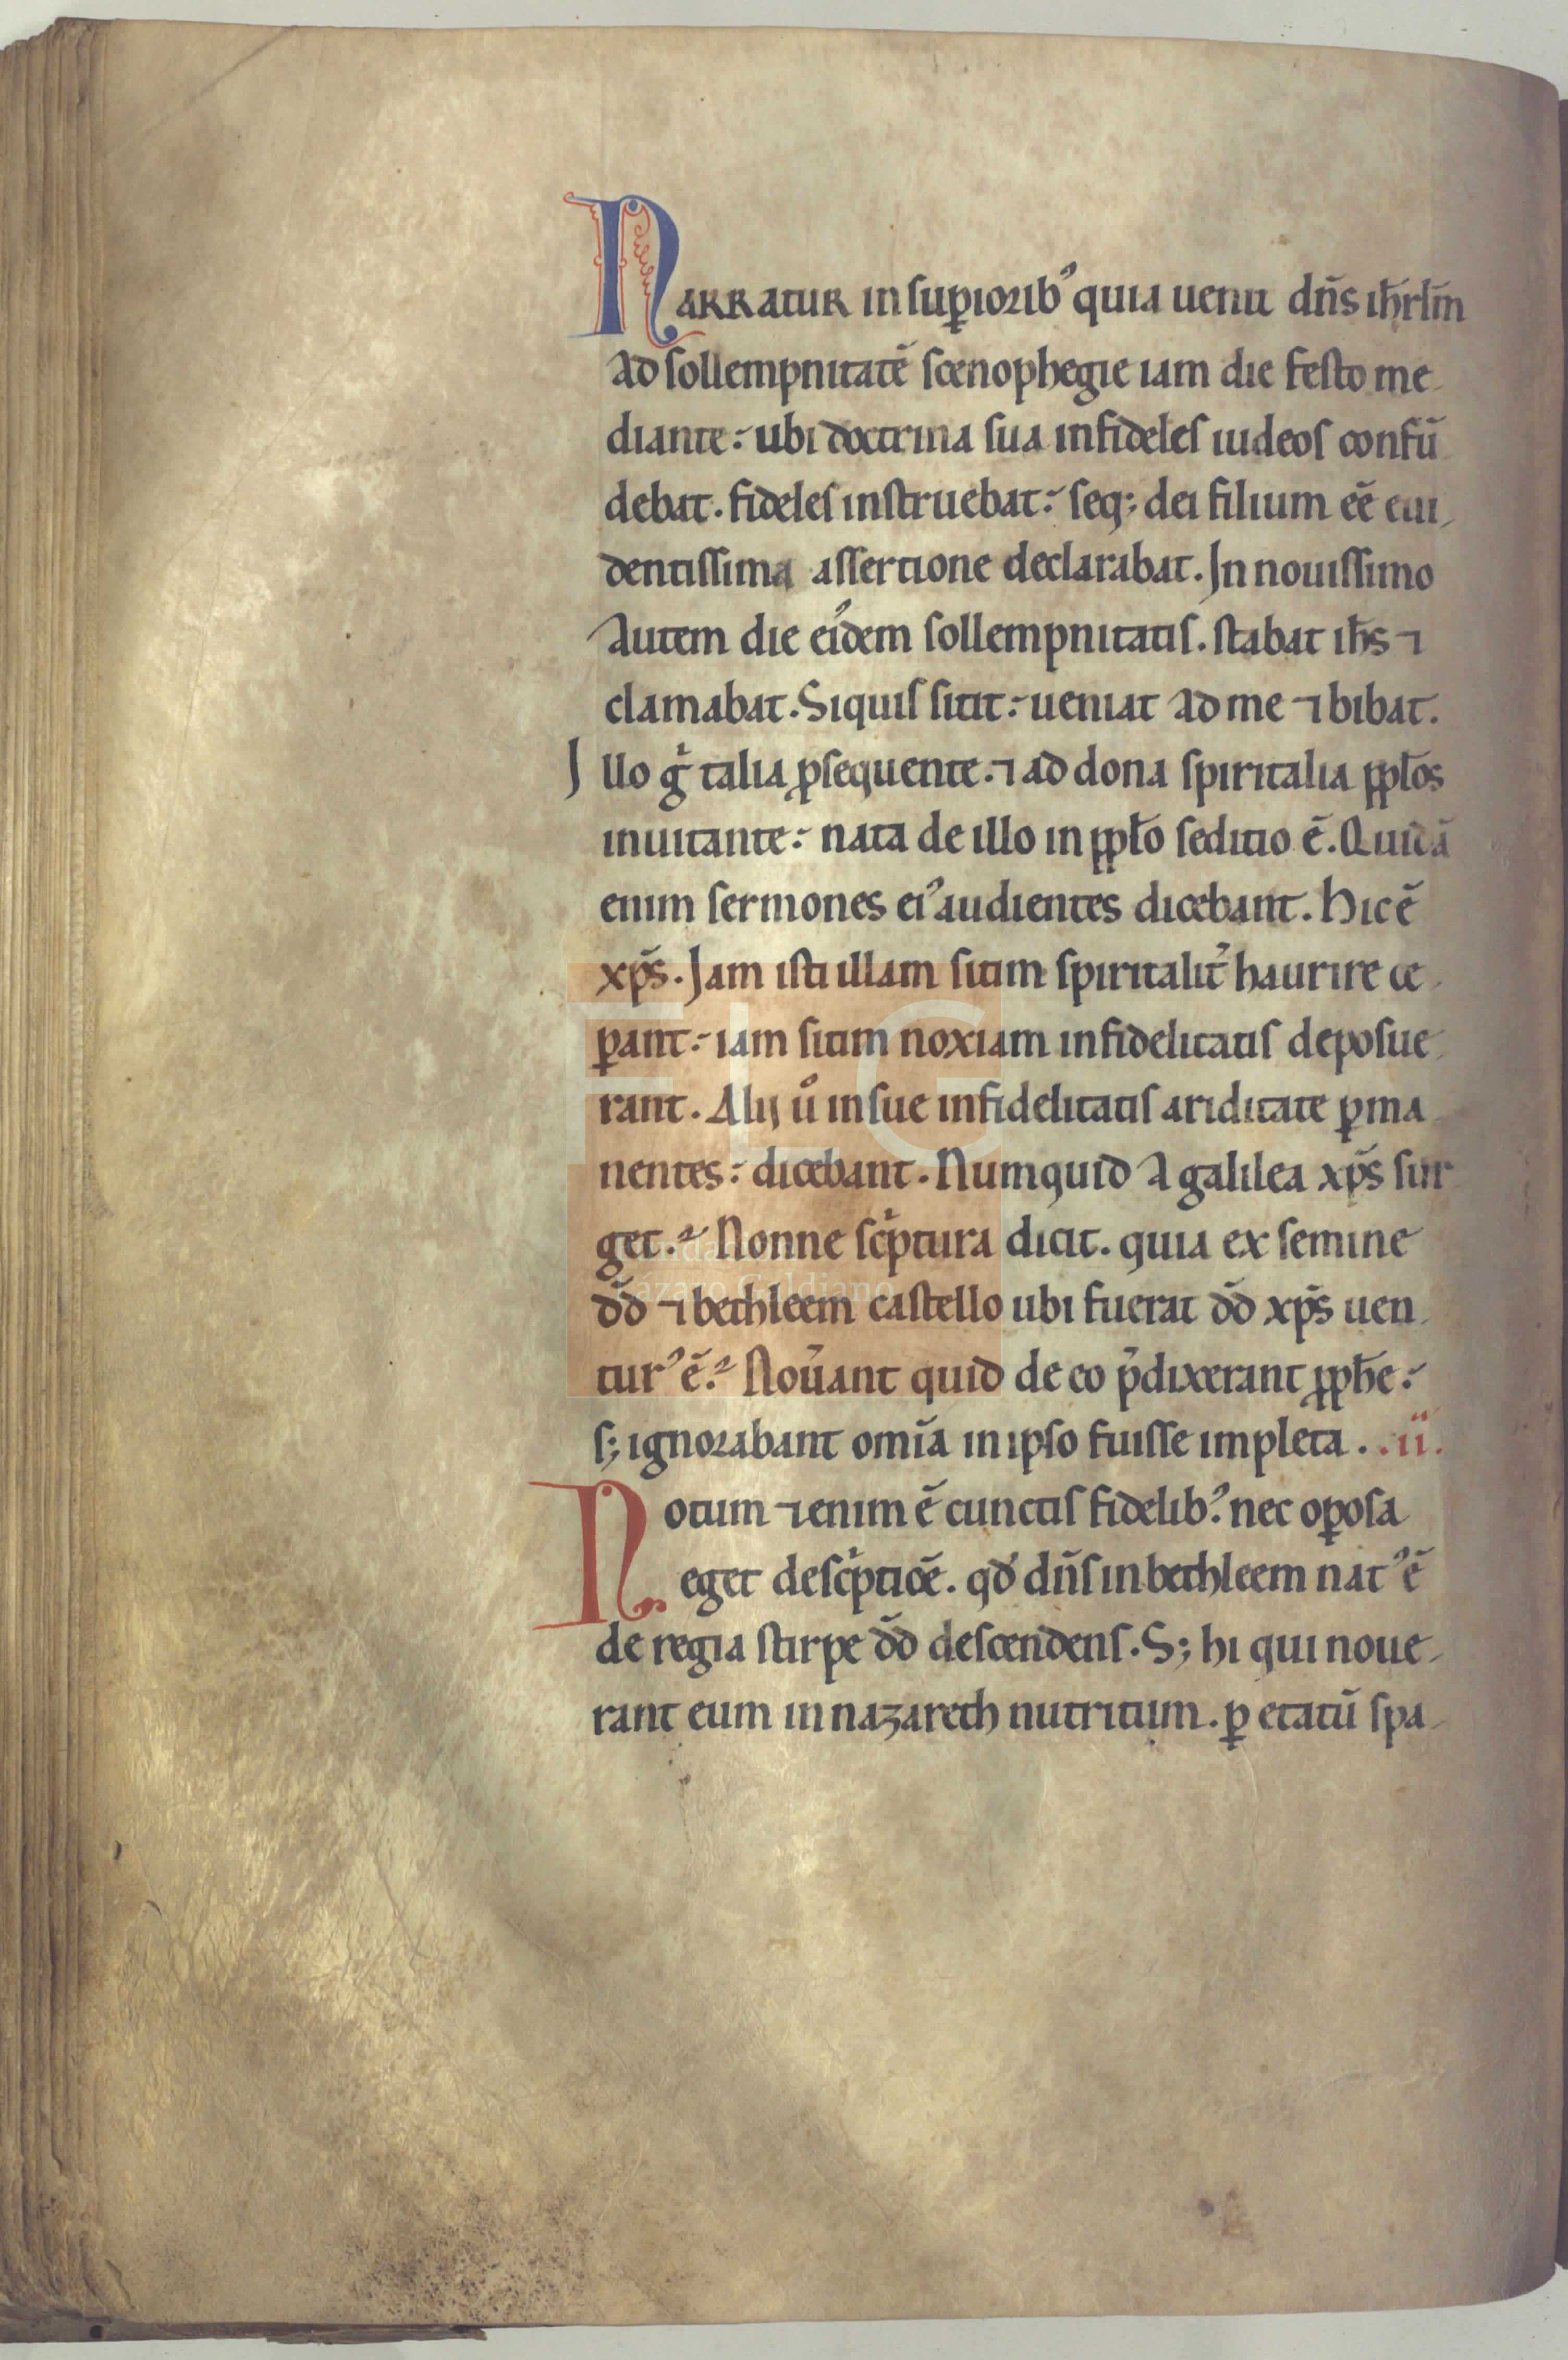 Narratur in supiorib᾽ quia uenit dn̄s ih̄rlm̄
ad sollempnitatē scenophegie iam die festo me
diante: ubi doctrina sua infideles iudeos confū
debat. fideles instruebat: seq; dei filium eē eui
dentissima assertione declarabat. In nouissimo
autem die ei᾽dem sollempnitatis. stabat ih̄s ⁊
clamabat. Siquis sitit: ueniat ad me ⁊ bibat.
Illo gͥ talia ꝓsequente. ⁊ ad dona spiritalia pp̄los
inuitante: nata de illo in pp̄lo seditio ē. Quidā
enim sermones ei᾽ audientes dicebant. Hic ē
xp̄s. Jam isti illam sitim spiritalit̄ haurire ce
ꝑant: iam sitim noxiam infidelitatis deposue
rant. Alij u̅ in sue infidelitatis ariditate ꝑma
nentes: dicebant. Numquid a galilea xp̄s sur
get.? Nonne scͥptura dicit. quia ex semine
dd̄ ⁊ bethleem castello ubi fuerat dd̄ xp̄s uen
tur᾽ ē.? Nou̅ant quid de eo p̄dixerant pph̄e:
s; ignorabant omīa in ipso fuisse impleta. .ii.
Notum ⁊enim ē cunctis fidelib᾽: nec oꝑosa
eget descͥptioē. qđ dn̄s in bethleem nat᾽ ē
de regia stirpe dd̄ descendens. S; hi qui noue
rant eum in nazareth nutritum. ꝑ etatū spa
FLG
Lázaro Galdiano